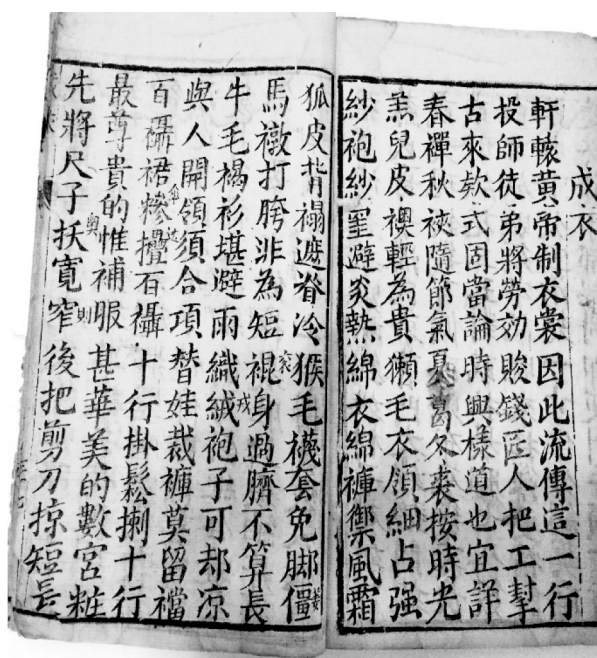 成衣
軒轅黃帝制衣裳因此流傳這一行
投師徒弟將勞効賧錢匠人把工掙
古來欵式固當論時興樣道也宜詳
春襌秋裌隨節氣夏葛冬裘按時光
羔兒皮襖輕為貴獺毛衣領細占强
紗袍紗罩避炎熱綿衣綿褲禦風霜
狐皮背褟遮脊冷猴毛襪套免脚僵
馬襖打胯非為短裩身過臍不算長
牛毛褐衫堪避雨織絨袍子可却凉
與人開領須合項替娃裁褲莫留襠
百襵裙 百襵十行掛鬆揦十行
最尊貴的惟補服甚華美的數宮粧
先將尺子抚寬窄後把剪刀掠短長